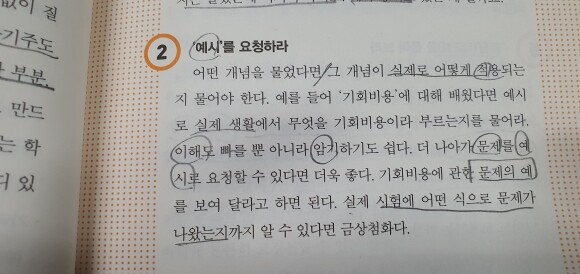 없이 질
기주도
부분
만드
는 학
더 있
2 '예시'를 요청하라
어떤 개념을 물었다면 그 개념이 실제로 어떻게 적용되는
지 물어야 한다. 예를 들어 '기회비용'에 대해 배웠다면 예시
로 실제 생활에서 무엇을 기회비용이라 부르는지를 물어라.
이해도 빠를 뿐 아니라 암기하기도 쉽다. 더 나아가 문제를 예
시로 요청할 수 있다면 더욱 좋다. 기회비용에 관한 문제의 예
를 보여 달라고 하면 된다. 실제 시험에 어떤 식으로 문제가
나왔는지까지 알 수 있다면 금상첨화다.